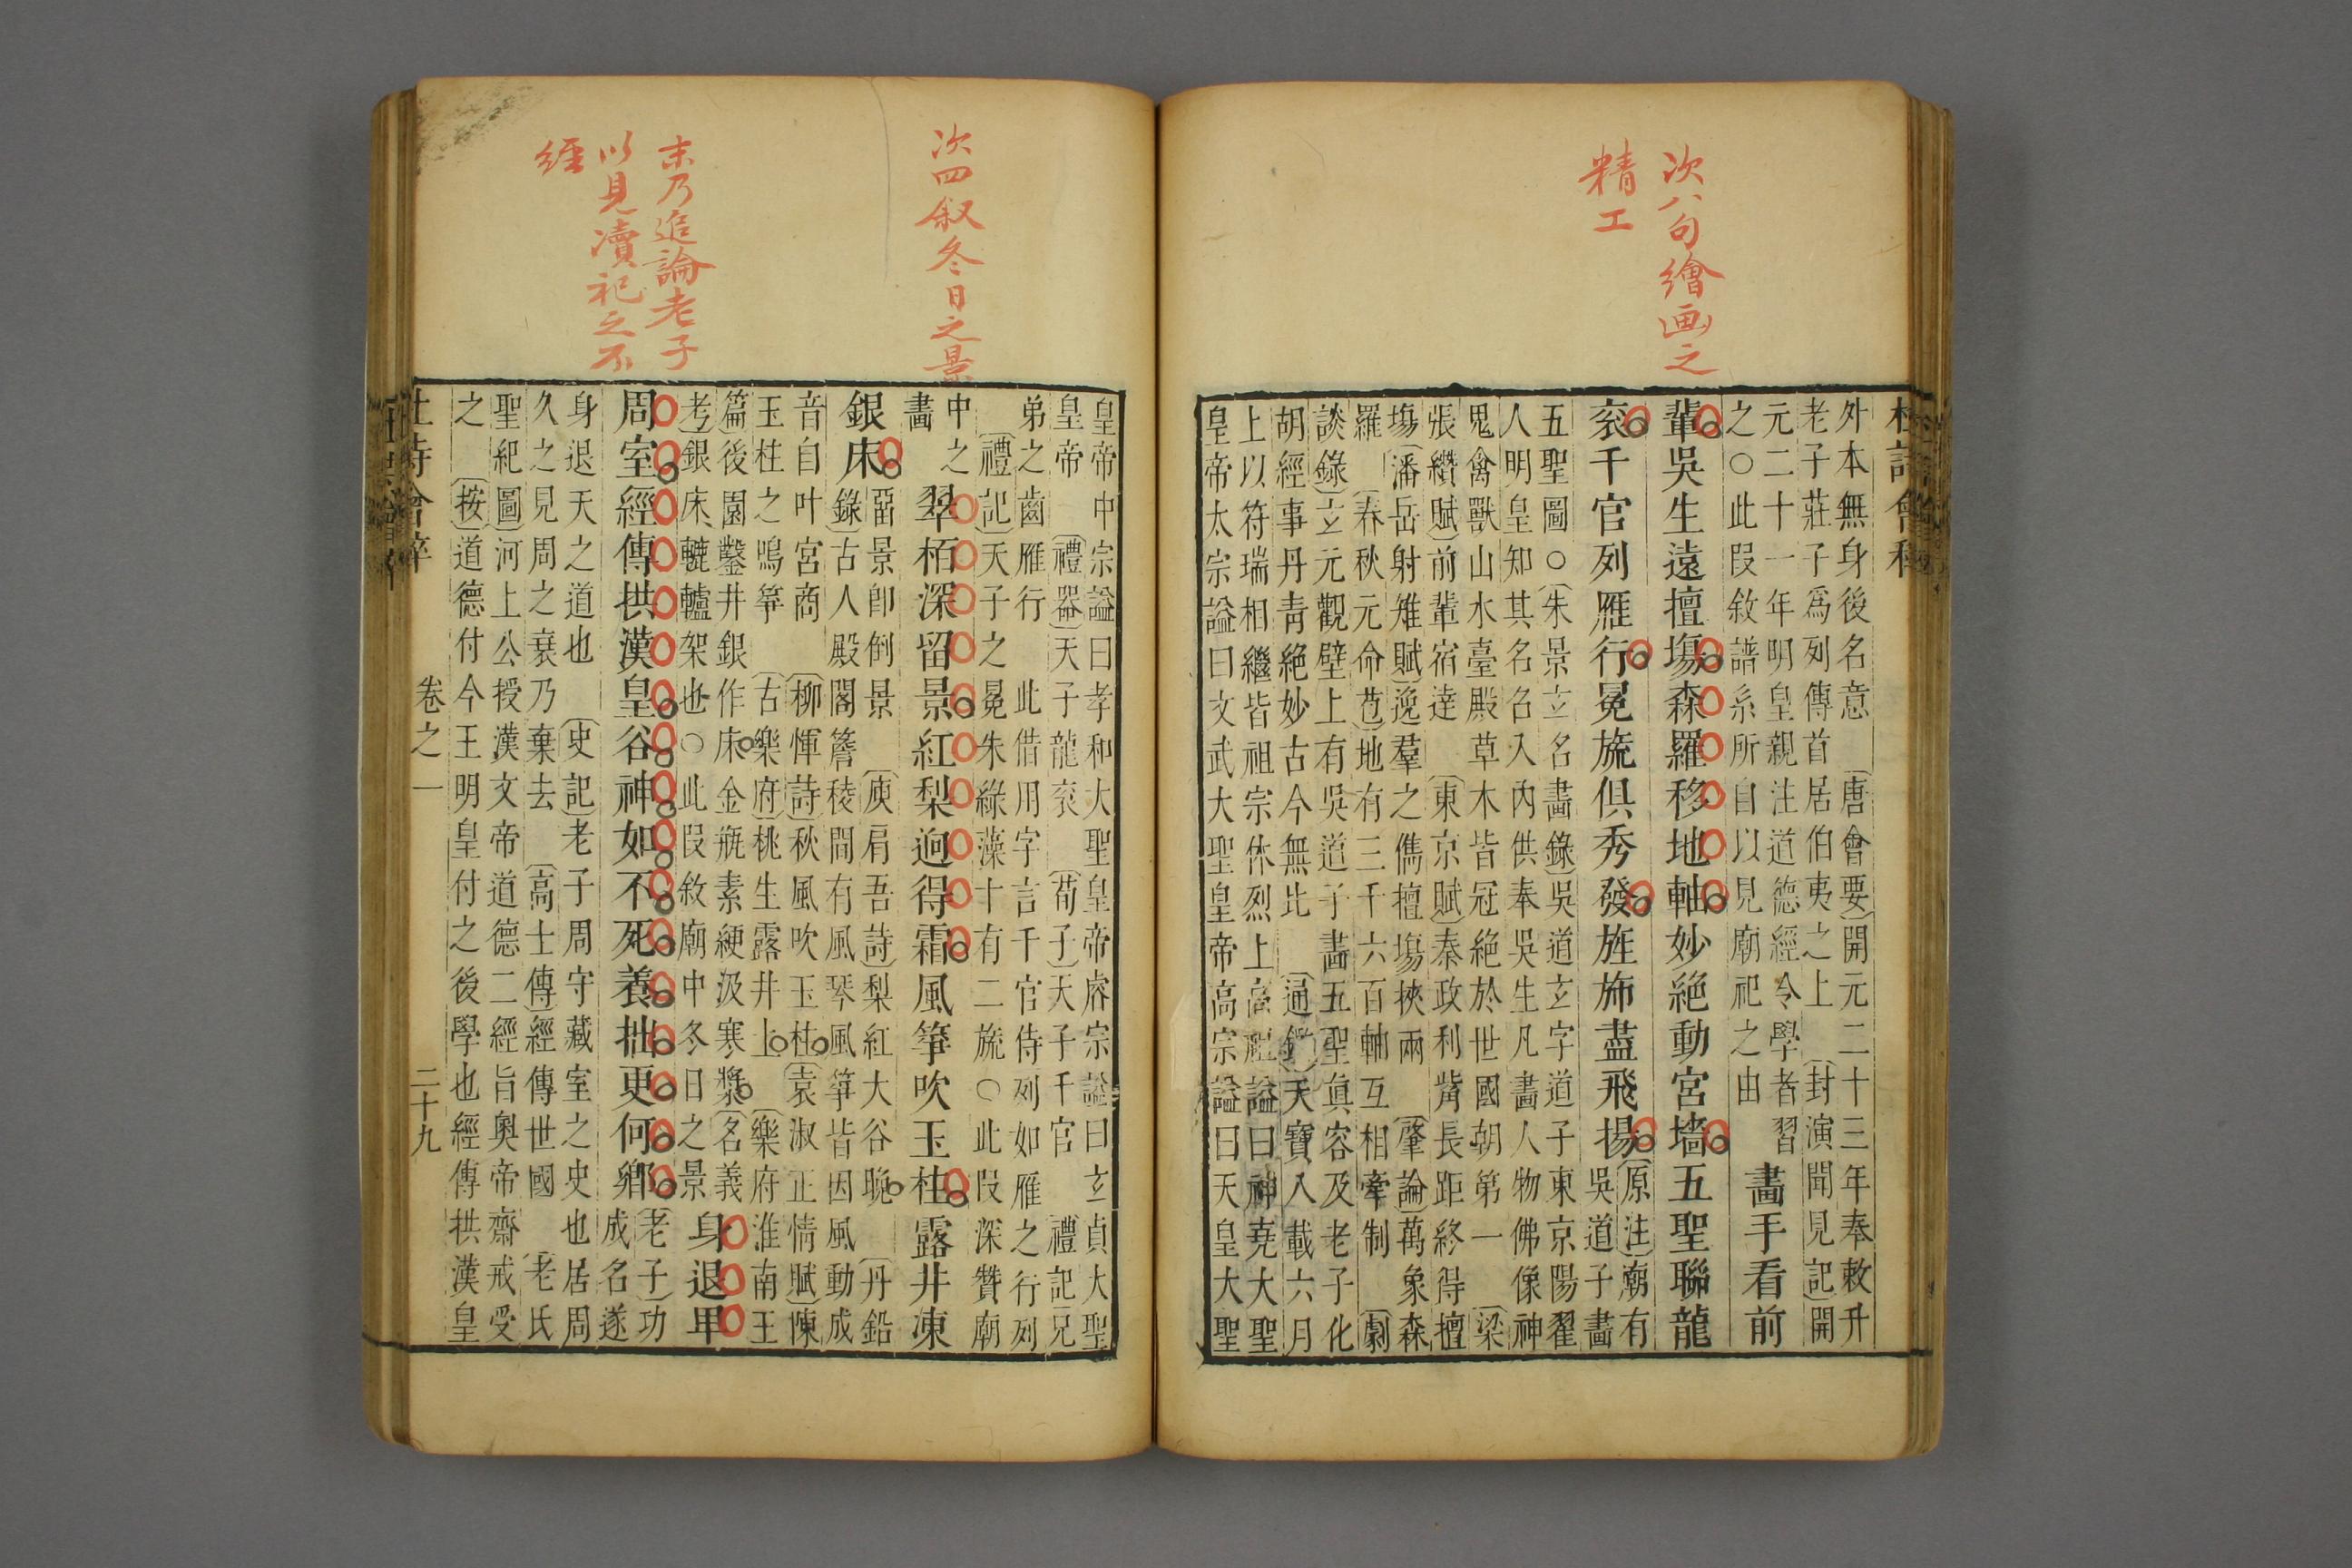 次八句繪画之
精工
外本無身後名意〔唐會要〕開元二十三年奉敕升
老子莊子爲列傳首居伯夷之上〔封演聞見記〕開
元二十一年明皇親注道德經令學者習
之○此叚敘譜系所自以見廟祀之由
畫手看前
輩吳生遠擅塲森羅移地軸妙絕動宮墻五聖聯龍
衮千官列雁行冕旒俱秀發旌斾盡飛揚
〔原注〕廟有
吳道子畫
五聖圖○〔朱景玄名畫錄〕吳道玄字道子東京陽翟
人明皇知其名召入內供奉吳生凡畫人物佛像神
鬼禽獸山水臺殿草木皆冠絕於世國朝第一〔梁
張纘賦〕前輩宿達〔東京賦〕秦政利觜長距終得擅
塲〔潘岳射雉賦〕逸羣之儁擅塲挾兩〔肇論〕萬象森
羅〔春秋元命苞〕地有三千六百軸互相牽制〔劇
談錄〕玄元觀壁上有吳道子畫五聖眞容及老子化
胡經事丹青絕妙古今無比〔通鑑〕天寶八載六月
上以符瑞相繼皆祖宗休烈上高祖諡曰神堯大聖
皇帝太宗諡曰文武大聖皇帝高宗諡曰天皇大聖
次四叙冬日之景
末乃追論老子
以見瀆祀之不
經
皇帝中宗諡曰孝和大聖皇帝睿宗諡曰玄貞大聖
皇帝〔禮器〕天子龍衮〔荀子〕天子千官〔禮記〕兄
弟之齒雁行此借用字言千官侍列如雁之行列
〔禮記〕天子之冕朱綠藻十有二旒○此叚深贊廟
中之
畫
翠栢深留景紅梨迥得霜風箏吹玉柱露井凍
銀床
畱景卽倒景〔庾肩吾詩〕梨紅大谷晚〔丹鉛
錄〕古人殿閣簷稜間有風琴風箏皆因風動成
音自叶宮商〔柳惲詩〕秋風吹玉柱〔袁淑正情賦〕陳
玉柱之鳴箏〔古樂府〕桃生露井上〔樂府淮南王
篇〕後園鑿井銀作床金瓶素綆汲寒漿〔名義
考〕銀床轆轤架也○此叚敘廟中冬日之景
身退卑
周室經傳拱漢皇谷神如不死養拙更何鄉
〔老子〕功
成名遂
身退天之道也〔史記〕老子周守藏室之史也居周
久之見周之衰乃棄去〔高士傳〕經傳世國〔老氏
聖紀圖〕河上公授漢文帝道德二經旨奧帝齋戒受
之〔按〕道德付今王明皇付之後學也經傳拱漢皇
杜詩會稡
卷之一
二十九